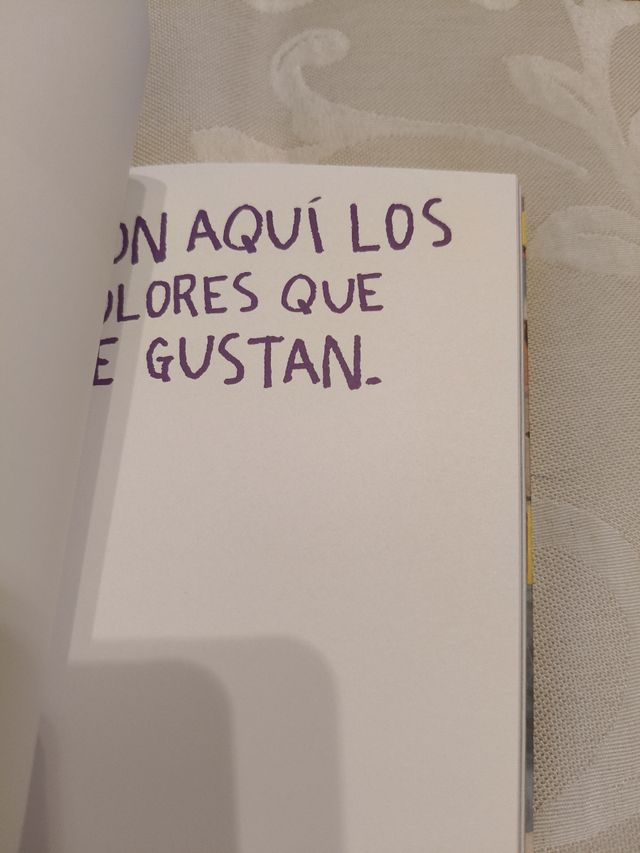 ON AQUÍ LOS
OLORES QUE
E GUSTAN.